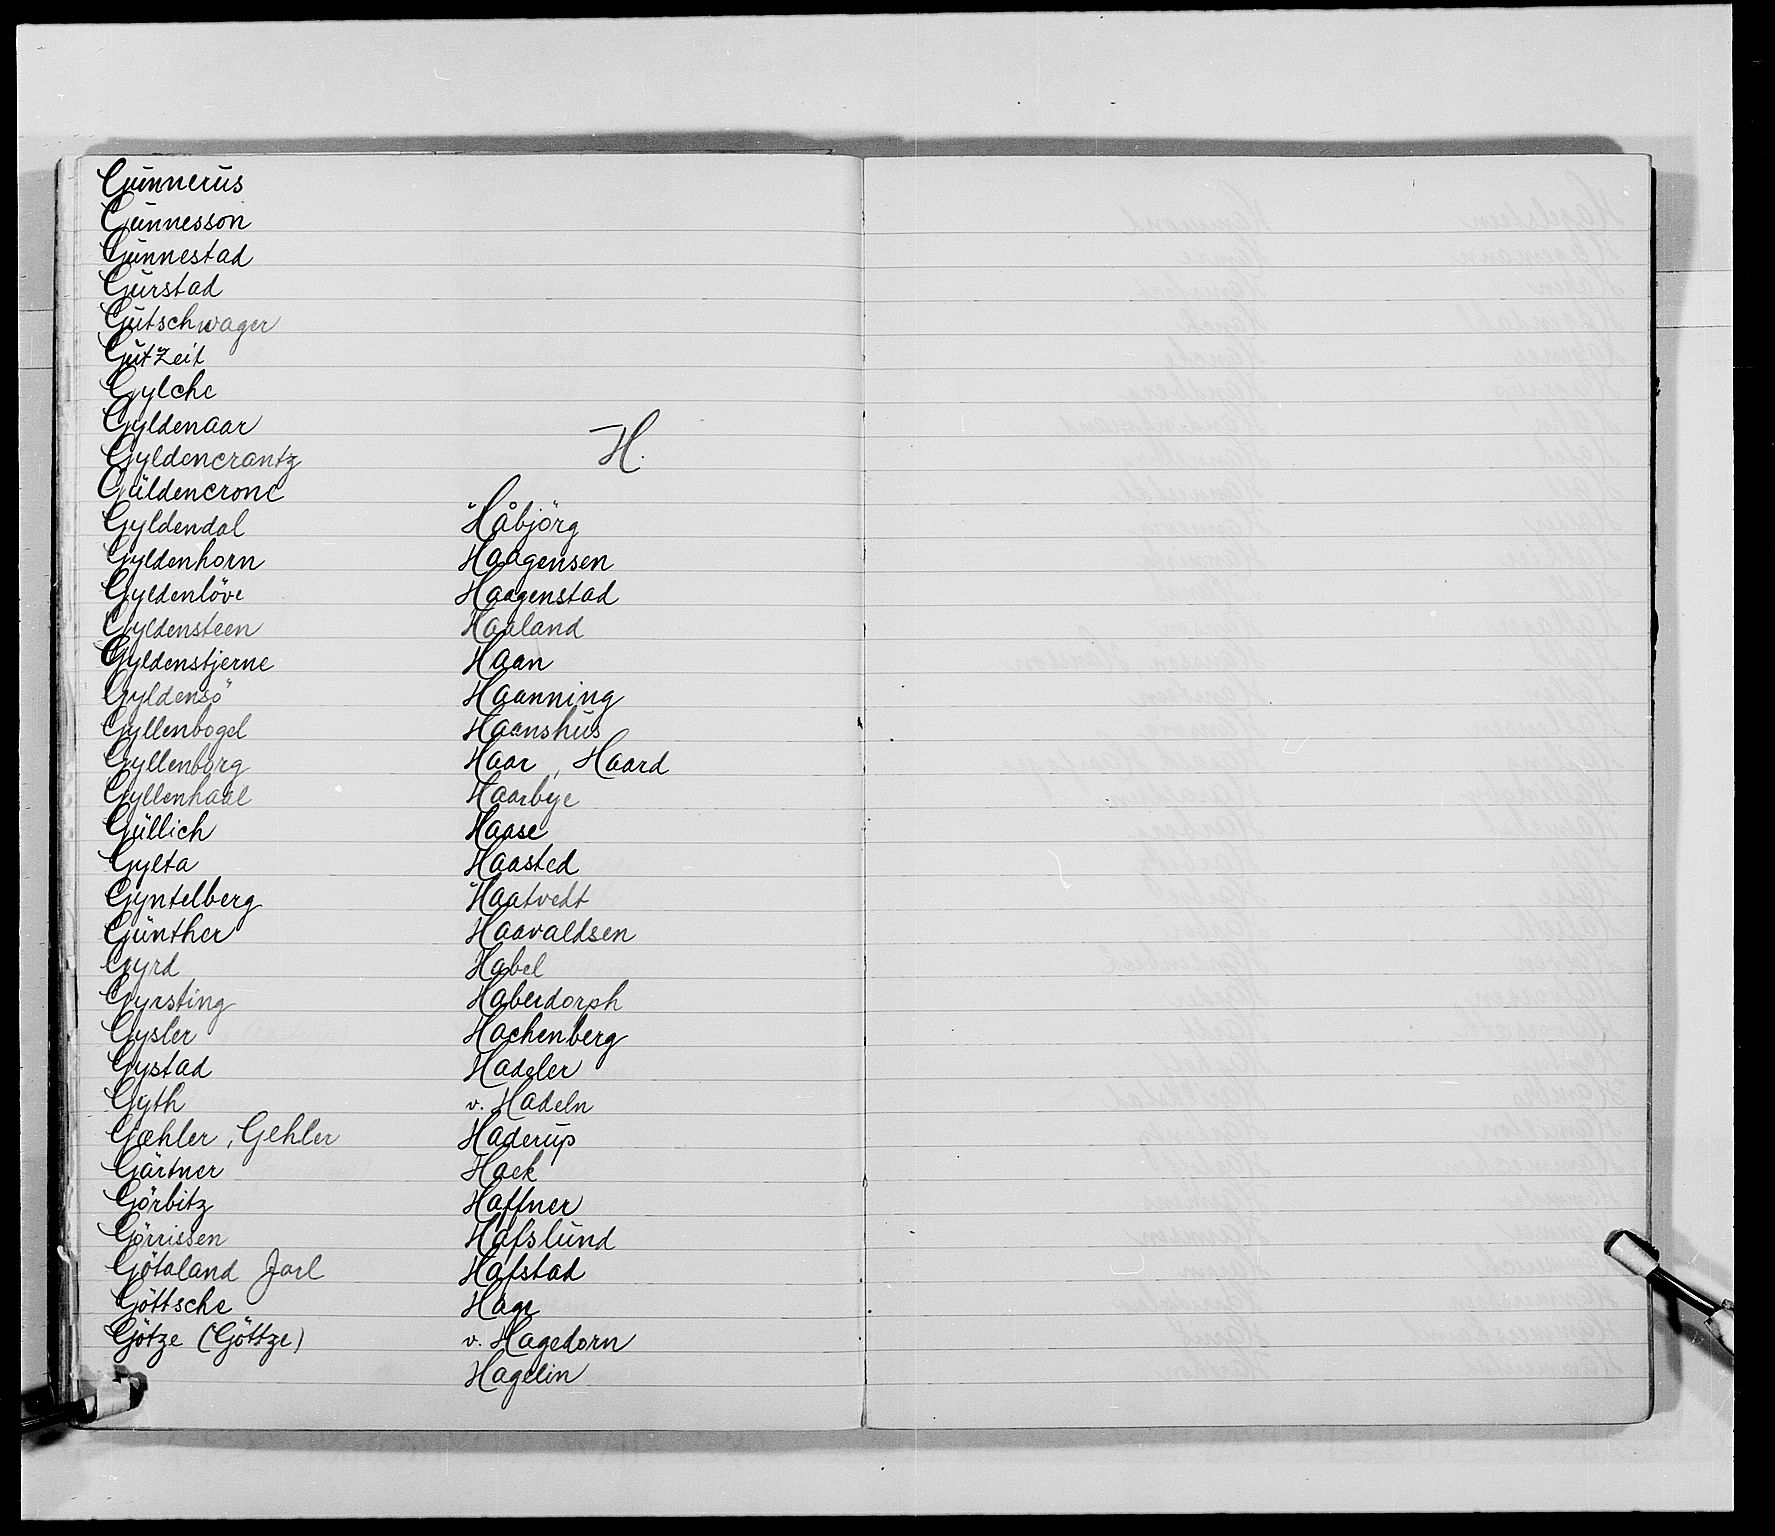 Gunnerus
Gunnesson
Gunnestad
Gurstad
Gutschwager
Gutzeit
Gylche
Gyldenaar
Gyldencrantz
Güldencrone
Gyldendal
Gyldenhorn
Gyldenlöve
Gyldensteen
Gyldenstjerne
Gyldensö
Gyllenbogel
Gyllenborg
Gyllenhaal
Güllich
Gylta
Gyntelberg
Günther
Gyrd
Gyrsting
Gysler
Gystad
Gyth
Gæhler, Gehler
Gärtner
Görbitz
Görrissen
Götaland Jarl
Göttsche
Götze (Göttze)
H.
Håbjörg
Haagensen
Haagenstad
Haaland
Haan
Haanning
Haanshus
Haar, Haard
Haarbye
Haase
Haasted
Haatvedt
Haavaldsen
Habel
Haberdorph
Hachenberg
Hadeler
v. Hadeln
Haderup
Haek
Haffner
Hafslund
Hafstad
Hage
v. Hagedorn
Hagelin